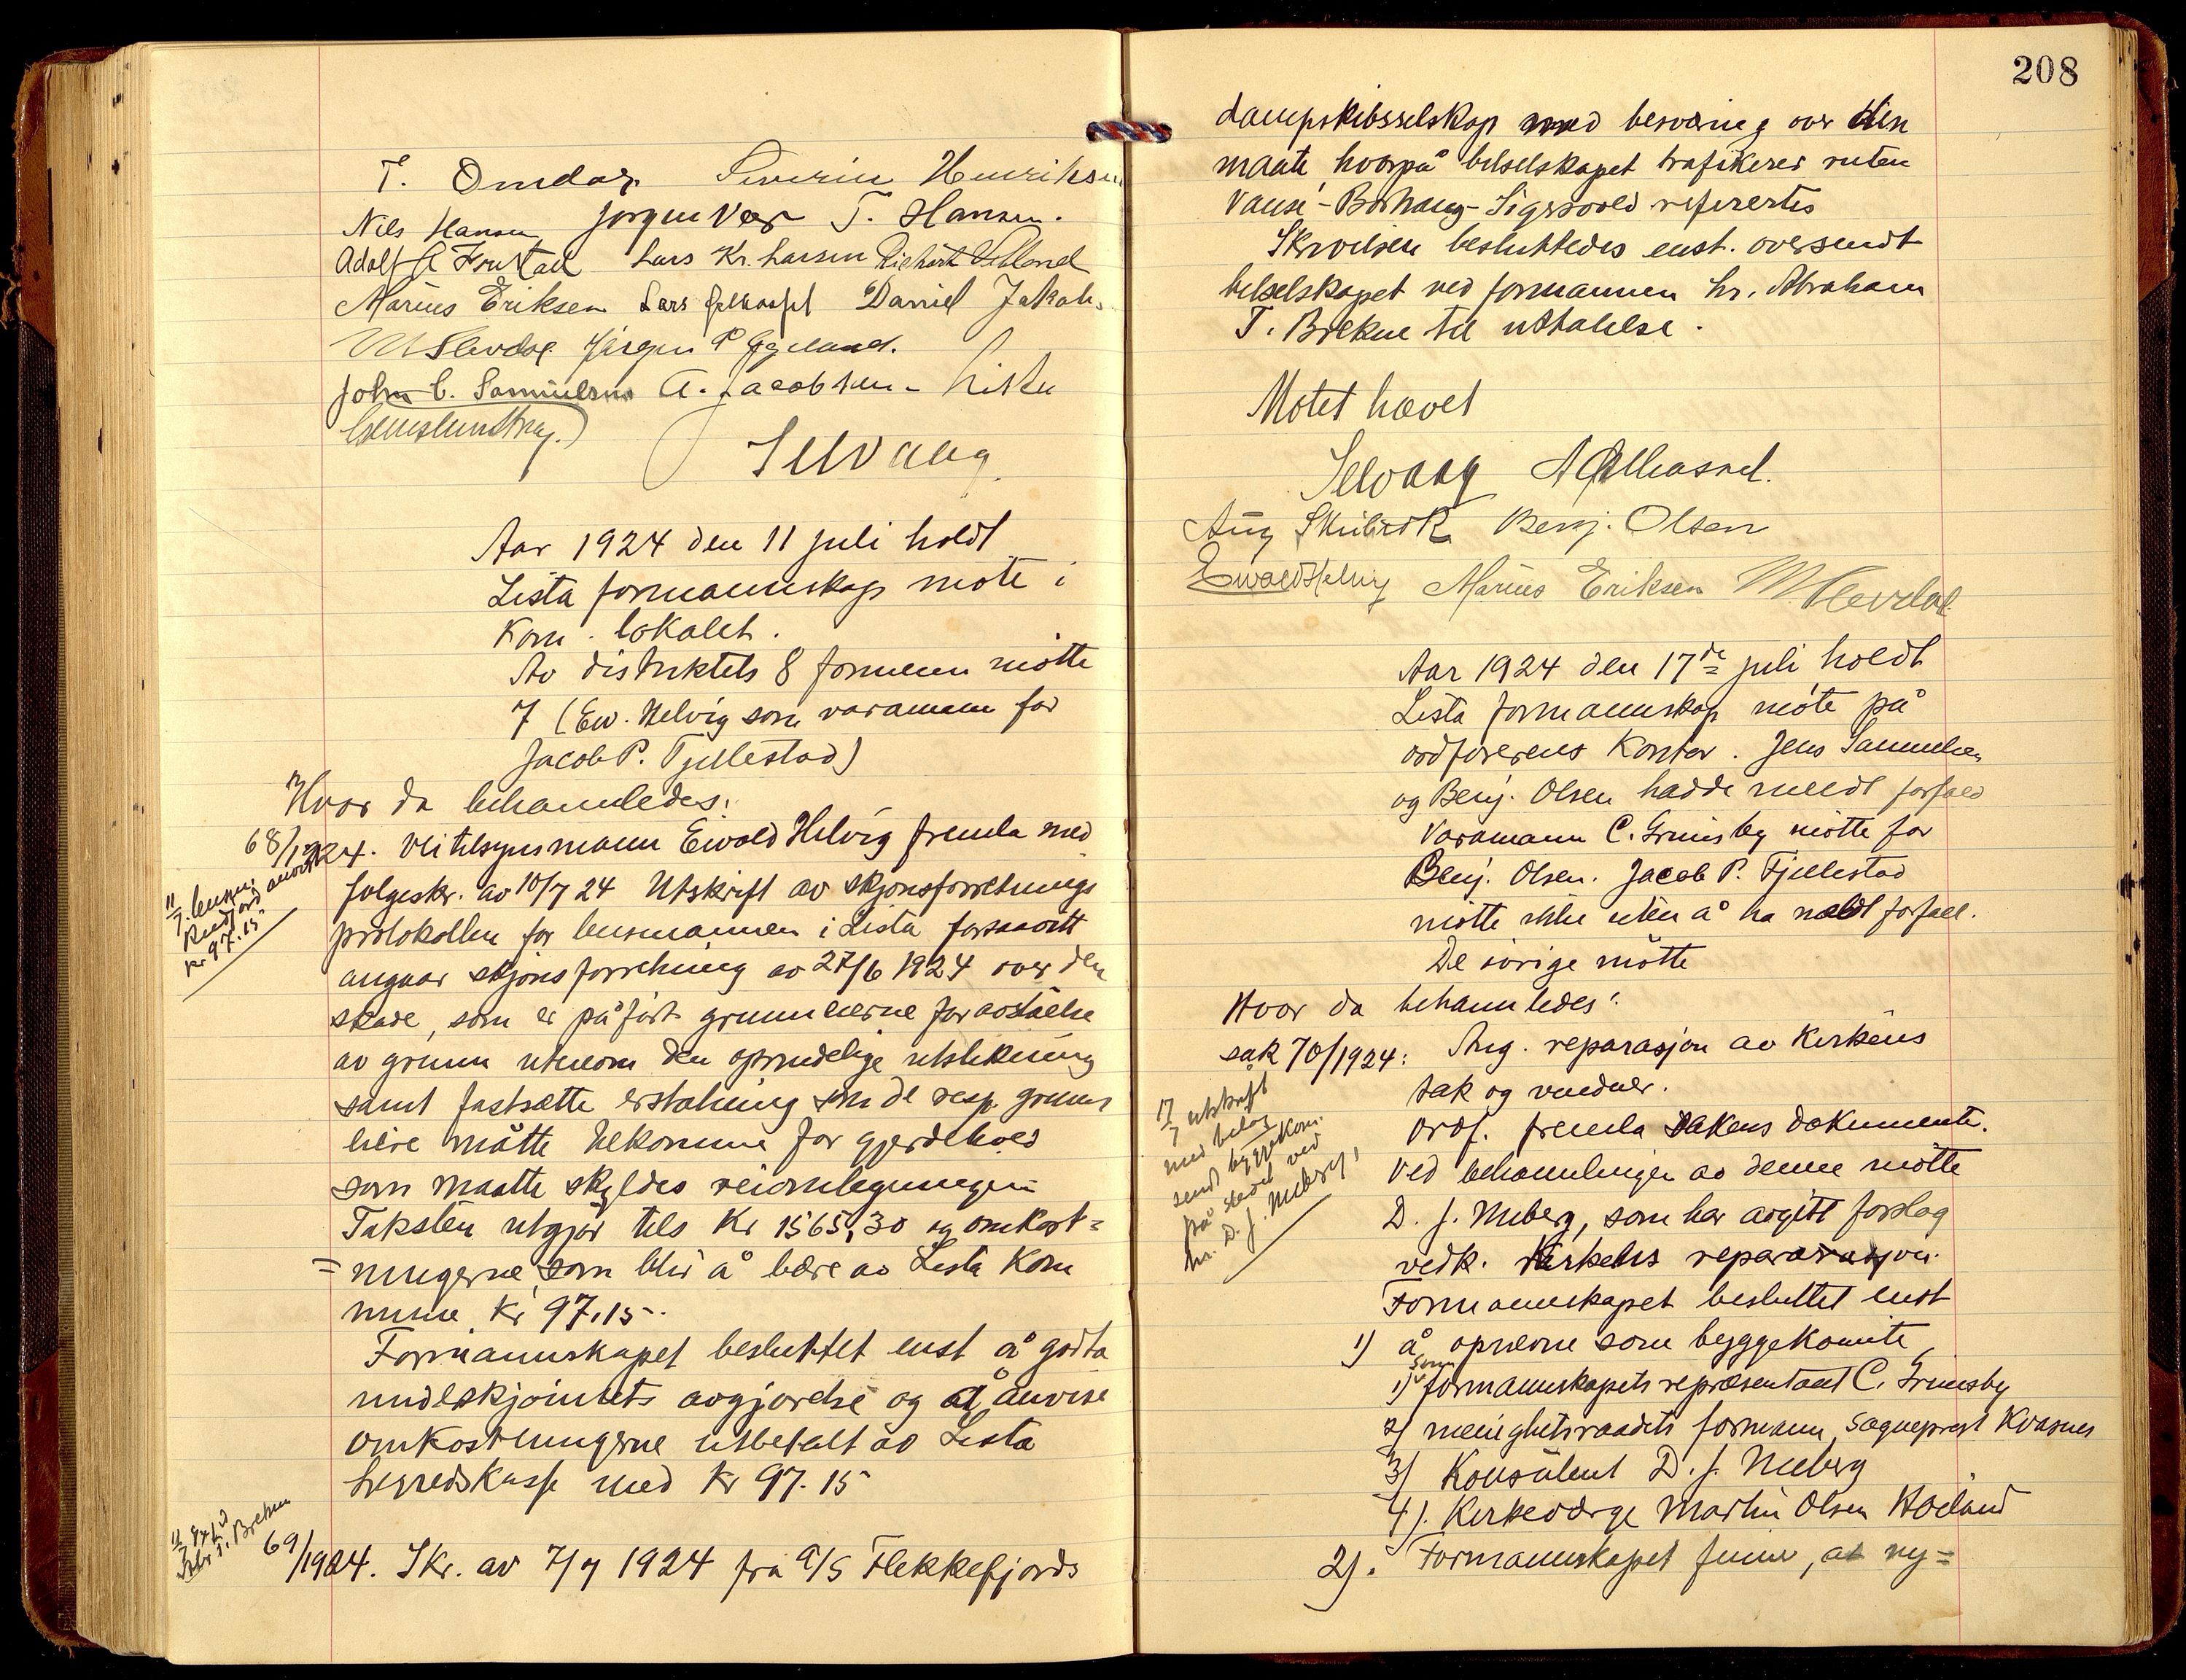 T. Omdar. Severin Henriksen
Nils Hansen Jørgen Ver T. Hansen.
Adolf A Frøstad Lars Kr. Larsen Richart
Marius Eriksen Lars Daniel Jakob.
M Slevdal Jørgen P
John C. Samuelsen A. Jacobsen - Lista
Selvaag
Aar 1924 den 11 juli holdt
Lista formannskap møte i
Kom. lokalet.
Av distriktets 8 formenn møtte
7 (Ew. Helvig som varamann for
Jacob P. Tjellestad)
Hvor da behandledes:
68/1924. Veitilsynsmann Ewald Helvig fremla med
følgeskr. av 10/7 24 Utskrift av skjønsforretnings
protokollen for lensmannen i Lista forsaavitt
angaar skjønsforretning av 27/6 1924 over den
skade, som er påført grunneierne for avståelse
av grunn utenom den oprindelige utstikning
samt fastsætte erstatning som de resp. grunn
eiere måtte tilkomme for gjerdehold
som maatte skyldes veiomlegningen
Taksten utgjør tils Kr 1565,30 og omkost=
=ningerne, som blir å bære av Lista Kom
mune, Kr 97.15.
Formannskapet besluttet enst å godta
undelskjønnets avgjørelse og å anvise
omkostningerne utbetalt av Lista
herredskasse med Kr 97.15
11/7. lensm.
anvist
Kr 97.15
11/7 Exp
Abr T. Brekne
69/1924. Skr. av 7/7 1924 fra A/S Flekkefjords
208
dampskibsselskap med besværing over den
maate, hvorpå bilselskapet trafikerer ruten
Vanse - Borhaug - Sigersvold refereertes
Skrivelsen besluttedes enst. oversendt
bilselskapet ved formannen hr. Abraham
T. Brekne til uttalelse.
Møtet hævet
Selvaag
Aug Skeibrok Benj. Olsen
Ewald Helvig Marius Eriksen M Slevdal
Aar 1924 den 17de juli holdt
Lista formannskap møte på
ordførerens Kontor. Jens Samuelsen
og Benj. Olsen hadde meldt forfald
Varamann C. Grimsby møtte for
Benj. Olsen. Jacob P. Tjellestad
møtte ikke uten å ha meldt forfall.
De øvrige møtte
Hvor da behannledes:
sak 70/1924: Ang. reparasjon av Kirkens
tak og vinduer.
Ordf. fremla sakens dokumenter.
Ved behannlingen av denne møtte
D. J. Muberg, som har avgitt forslag
vedk. Kirkens reparasjon.
Formannskapet besluttet enst
1) å opnevne som byggekomite
1) som formannskapets repræsentant C. Grimsby
2) menighetsraadets formann, sogneprest Kvasnes
3) Konsulent D. J. Muberg
4). Kirkeværge Martin Olsen Høiland
2). Formannskapet finner, at ny=
17/7 utskrift
med bilag
sendt byggekom.
på stedet ved
hr. D. J. Muberg,